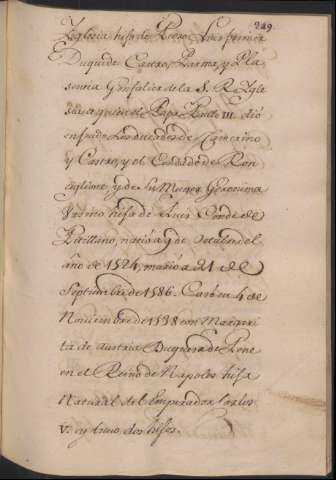 249
Iglesia hijo de Pedro Luis primer
Duque de Castro, Parma, y Pla
sencia Gonfalier de la S. R. Igle
sia, a quien el Papa Paulo III. dió
en feudo los ducados de Camerino
y Castro, y el Condado de Ron
ciglione, y de su Muger Geronima
Vrsino hija de Luis Conde de
Pitillano, nació a 9 de Octubre del
año de 1524, murio a 21 de
Septiembre de 1586. Casó en 4 de
Noviembre de 1538 con Margari
ta de Austria Duquesa de Pene
en el Reino de Napoles hija
Natural del Emperador Carlos
V. y tuvo dos hijos.